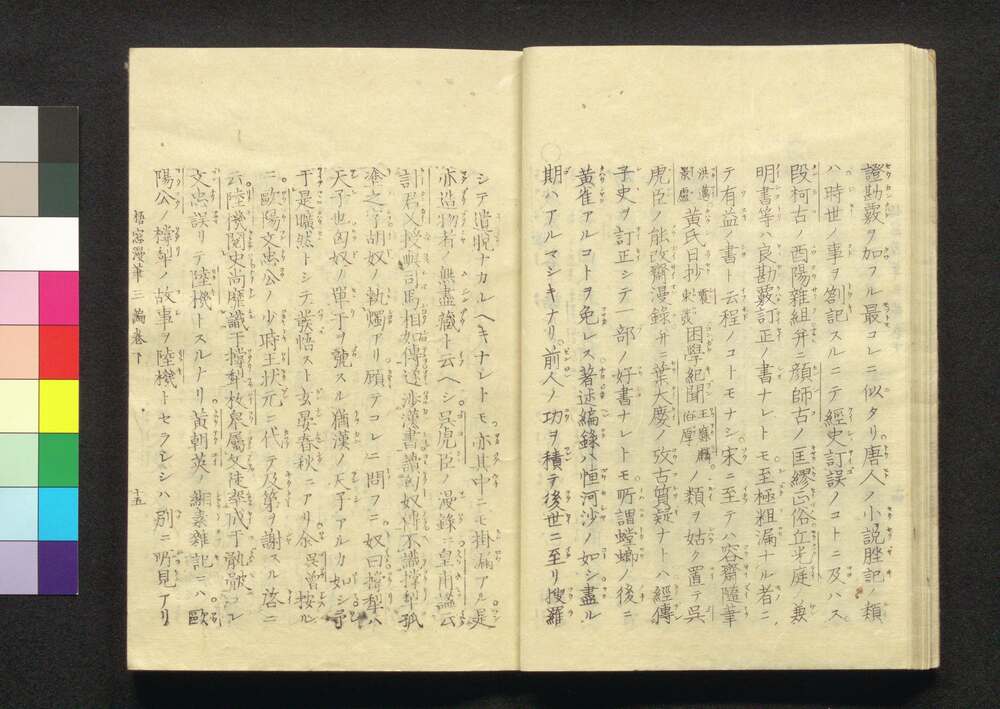 證勘覈ヲ加フル最コレニ似タリ唐人ノ小説脞記ノ類
ハ時世ノ事ヲ箚記スルニテ經史訂誤ノコトニ及ハス
段柯古ノ酉陽雜組弁ニ顔師古ノ匡繆正俗丘光庭ノ兼
明書等ハ良勘覈訂正ノ書ナレトモ至極粗漏ナル者ニ
テ有益ノ書ト云程ノコトモナシ宋ニ至テハ容齋隨筆
洪邁景盧黄氏日抄東發困學紀聞王應麟伯厚ノ類ヲ姑ク置テ呉
虎臣ノ能改齋漫錄弁ニ葉大慶ノ攷古質疑ナトハ經傳
子史ヲ訂正シテ一部ノ好書ナレトモ所謂螳螂ノ後ニ
黄雀アルコトヲ免レス著述編錄ハ恒河沙ノ如シ盡ル
期ハアルマシキナリ前人ノ功ヲ積テ後世ニ至リ搜羅
シテ遺脱ナカルヘキナレトモ亦其中ニモ掛漏アル是
亦造物者ノ無盡藏ト云ヘシ呉虎臣ノ漫錄ニ皇甫謐云
計君又授與司馬相如傳遂渉漢書讀匈奴傳不識撑犁孤
塗之字胡奴ノ執燭アリ顧テコレニ問フニ奴曰撑犁ハ
天子也匈奴ノ單于ヲ號スル猶漢ノ天子アルカ如シ予
于是曠然トシテ發悟スト玄晏春秋ニアリ余呉曾按ル
ニ歐陽文忠公ノ少時王状元ニ代テ及第ヲ謝スル啓ニ
云陸機閲史尚靡識于撑犁枚皐屬文徒率成于骫骳コレ
文忠誤リテ陸機トスルナリ黄朝英ノ緗素雜記ニハ歐
陽公ノ撑犁ノ故事ヲ陸機トセラレシハ別ニ所見アリ
梧窓漫筆三編巻下
十五